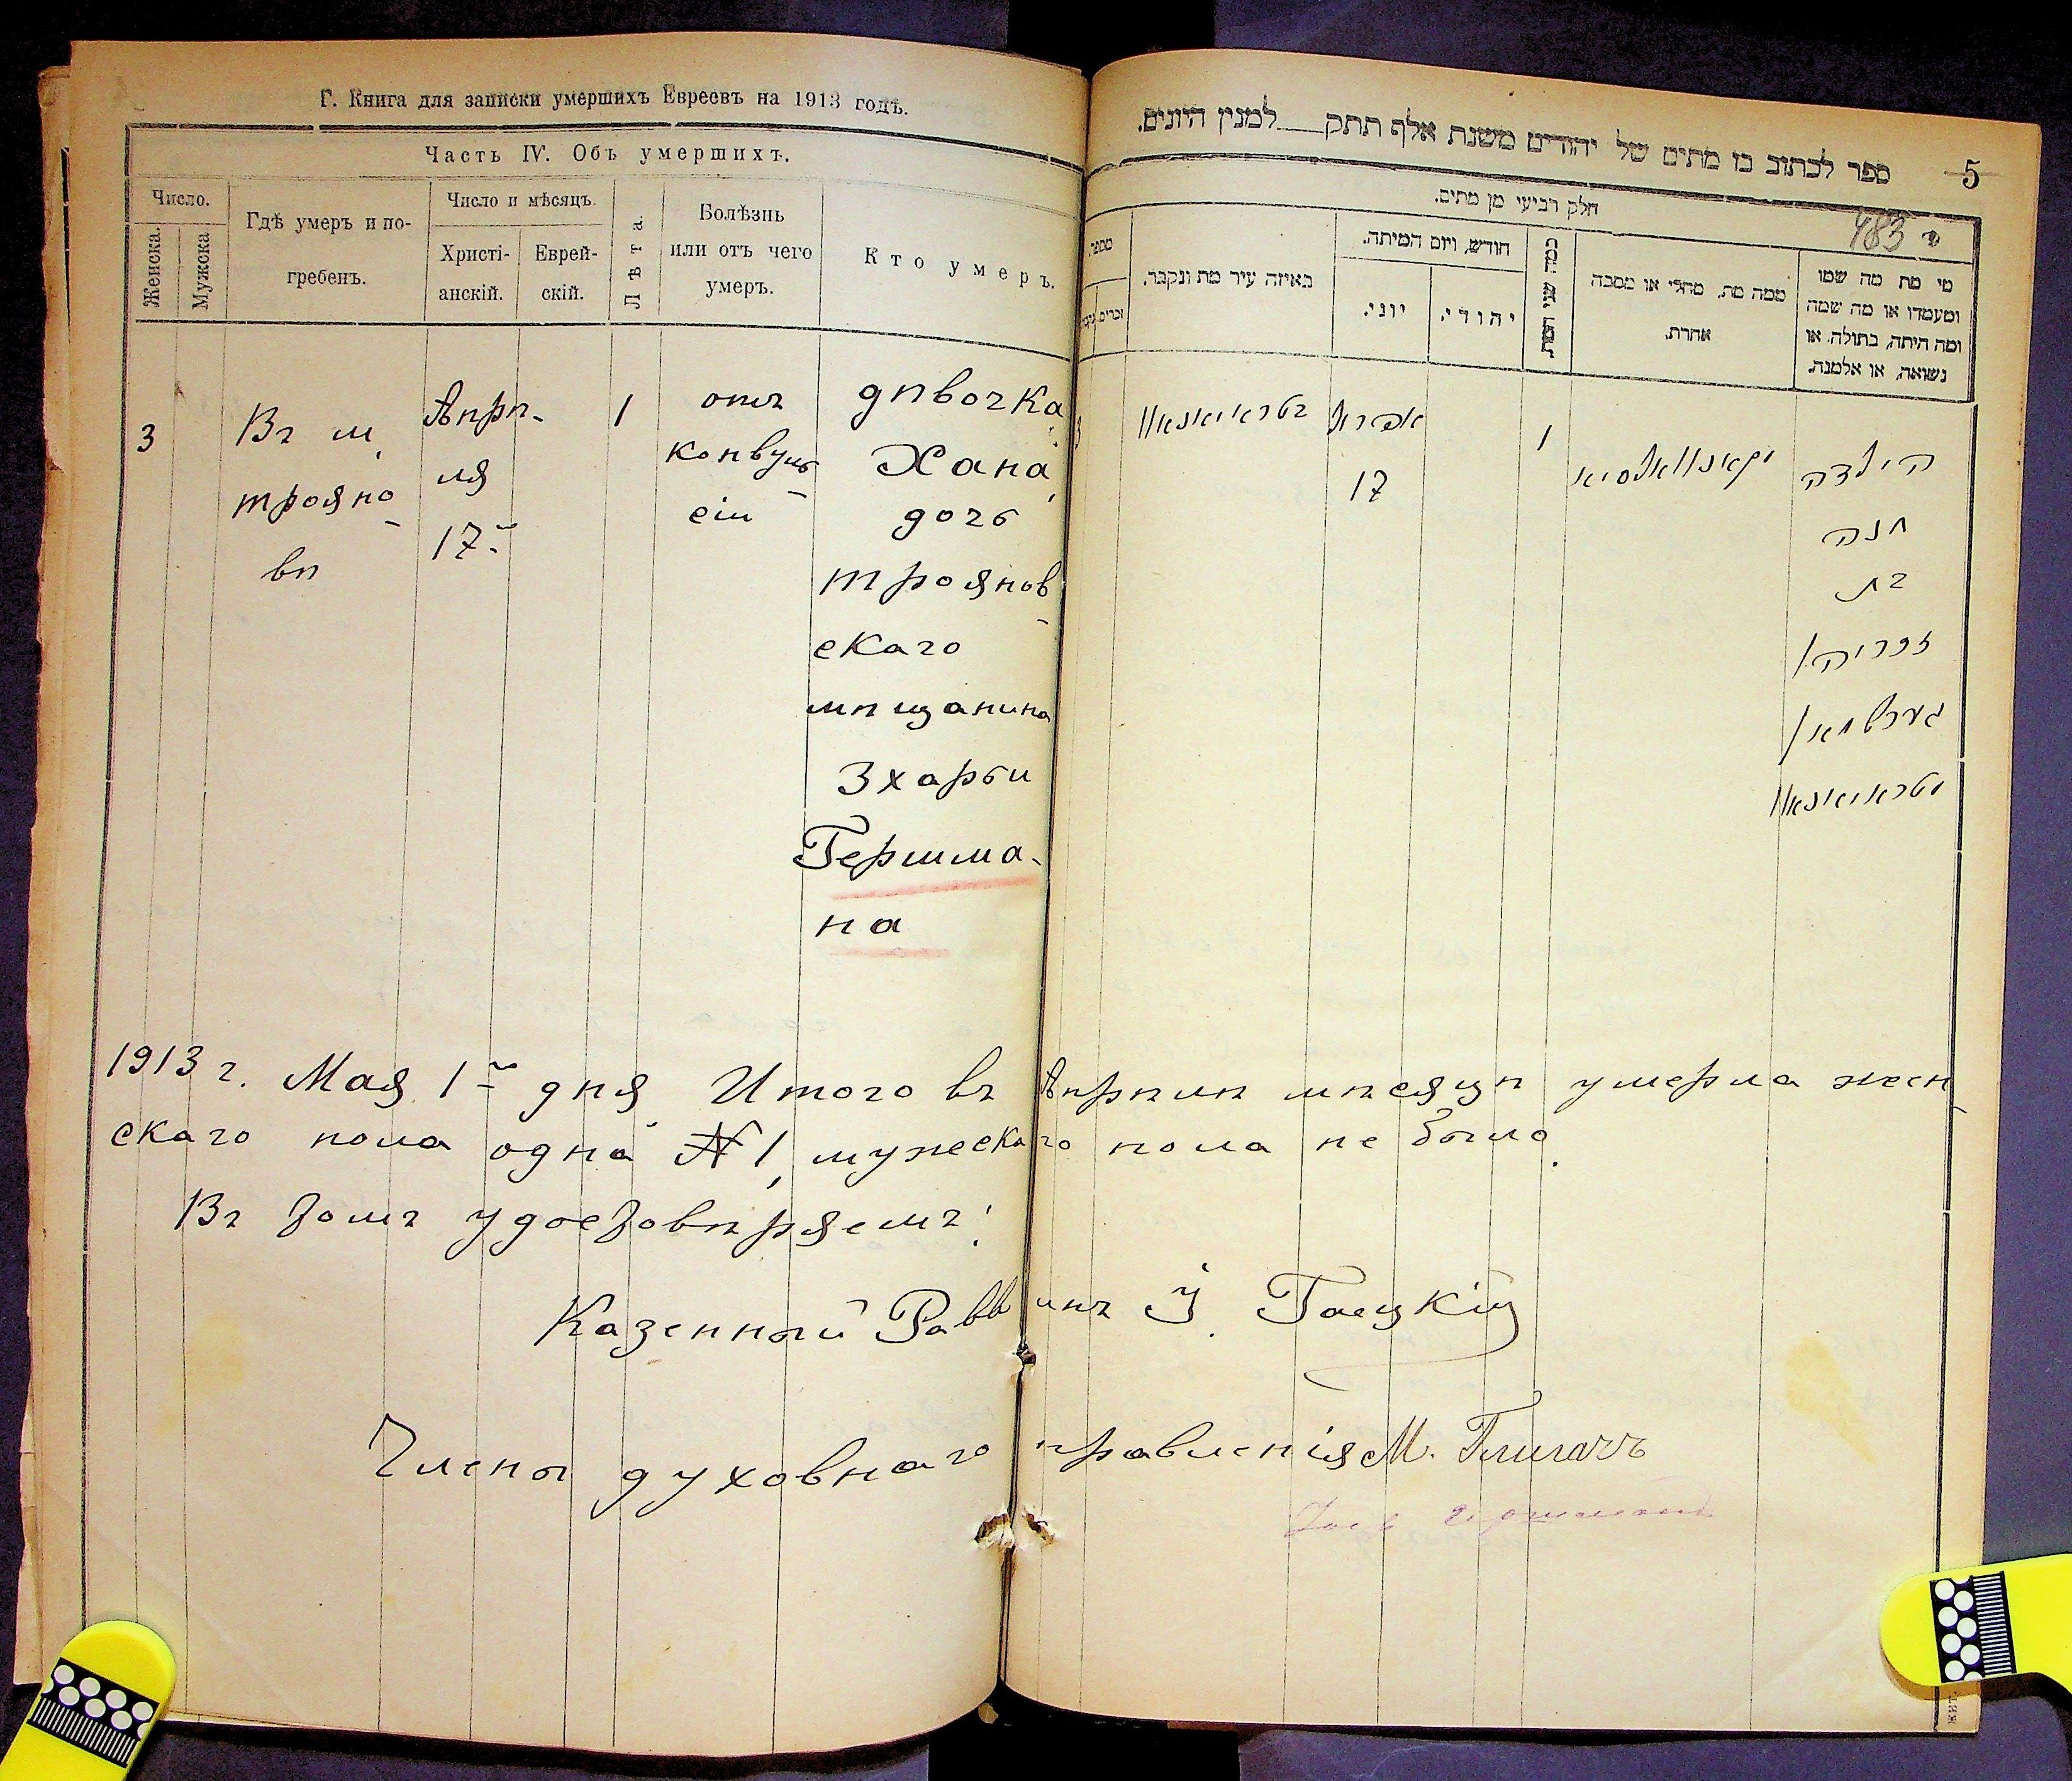 Г. Книга для записки умершихъ Евреевъ на 1913 годъ.
Часть IV. Объ умершихъ.
Число.
Женска.
Мужска.
Гдѣ умеръ и по-
гребенъ.
Число и мѣсяцъ.
Христі-
анскій.
Еврей-
скій.
Лѣта.
Болѣзнь
или отъ чего
умеръ.
Кто умеръ.
3
Въ м.
трояно
вѣ
Апрѣ-
ля
17-
1
отъ
конвуль
сіи
дѣвочка
Хана,
дочь
троянов
скаго
мѣщанина
Зхарьи
Гершма-
на
ספר לכתוב בו מתים של יהודים משנת אלף תתק למנין היונים.
5
483
חלק רביעי מן מתים.
מספר.
זכרים
באיזה עיר מת ונקבר.
חודש, ויום המיתה.
יוני.
יהודי.
כמה שני המת
ממה מת, מחלי או מסבה
אחרת.
מי מת מה שמו
ומעמדו או מה שמה
ומה היתה, בתולה, או
נשואה, או אלמנה.
3
בטראיאנאוו
אפריל
17
1
הילדה
חנה
בת
זכריה
גערשמאן
1913 г. Мая 1- дня Итого въ Апрѣлѣ мѣсяцѣ умерла жен
скаго пола одна № 1, мужескаго пола не было.
Въ томъ удостовѣряемъ:
Казенный Раввинъ І. Гаецкій
Члены духовнаго правленія М. Глигачъ